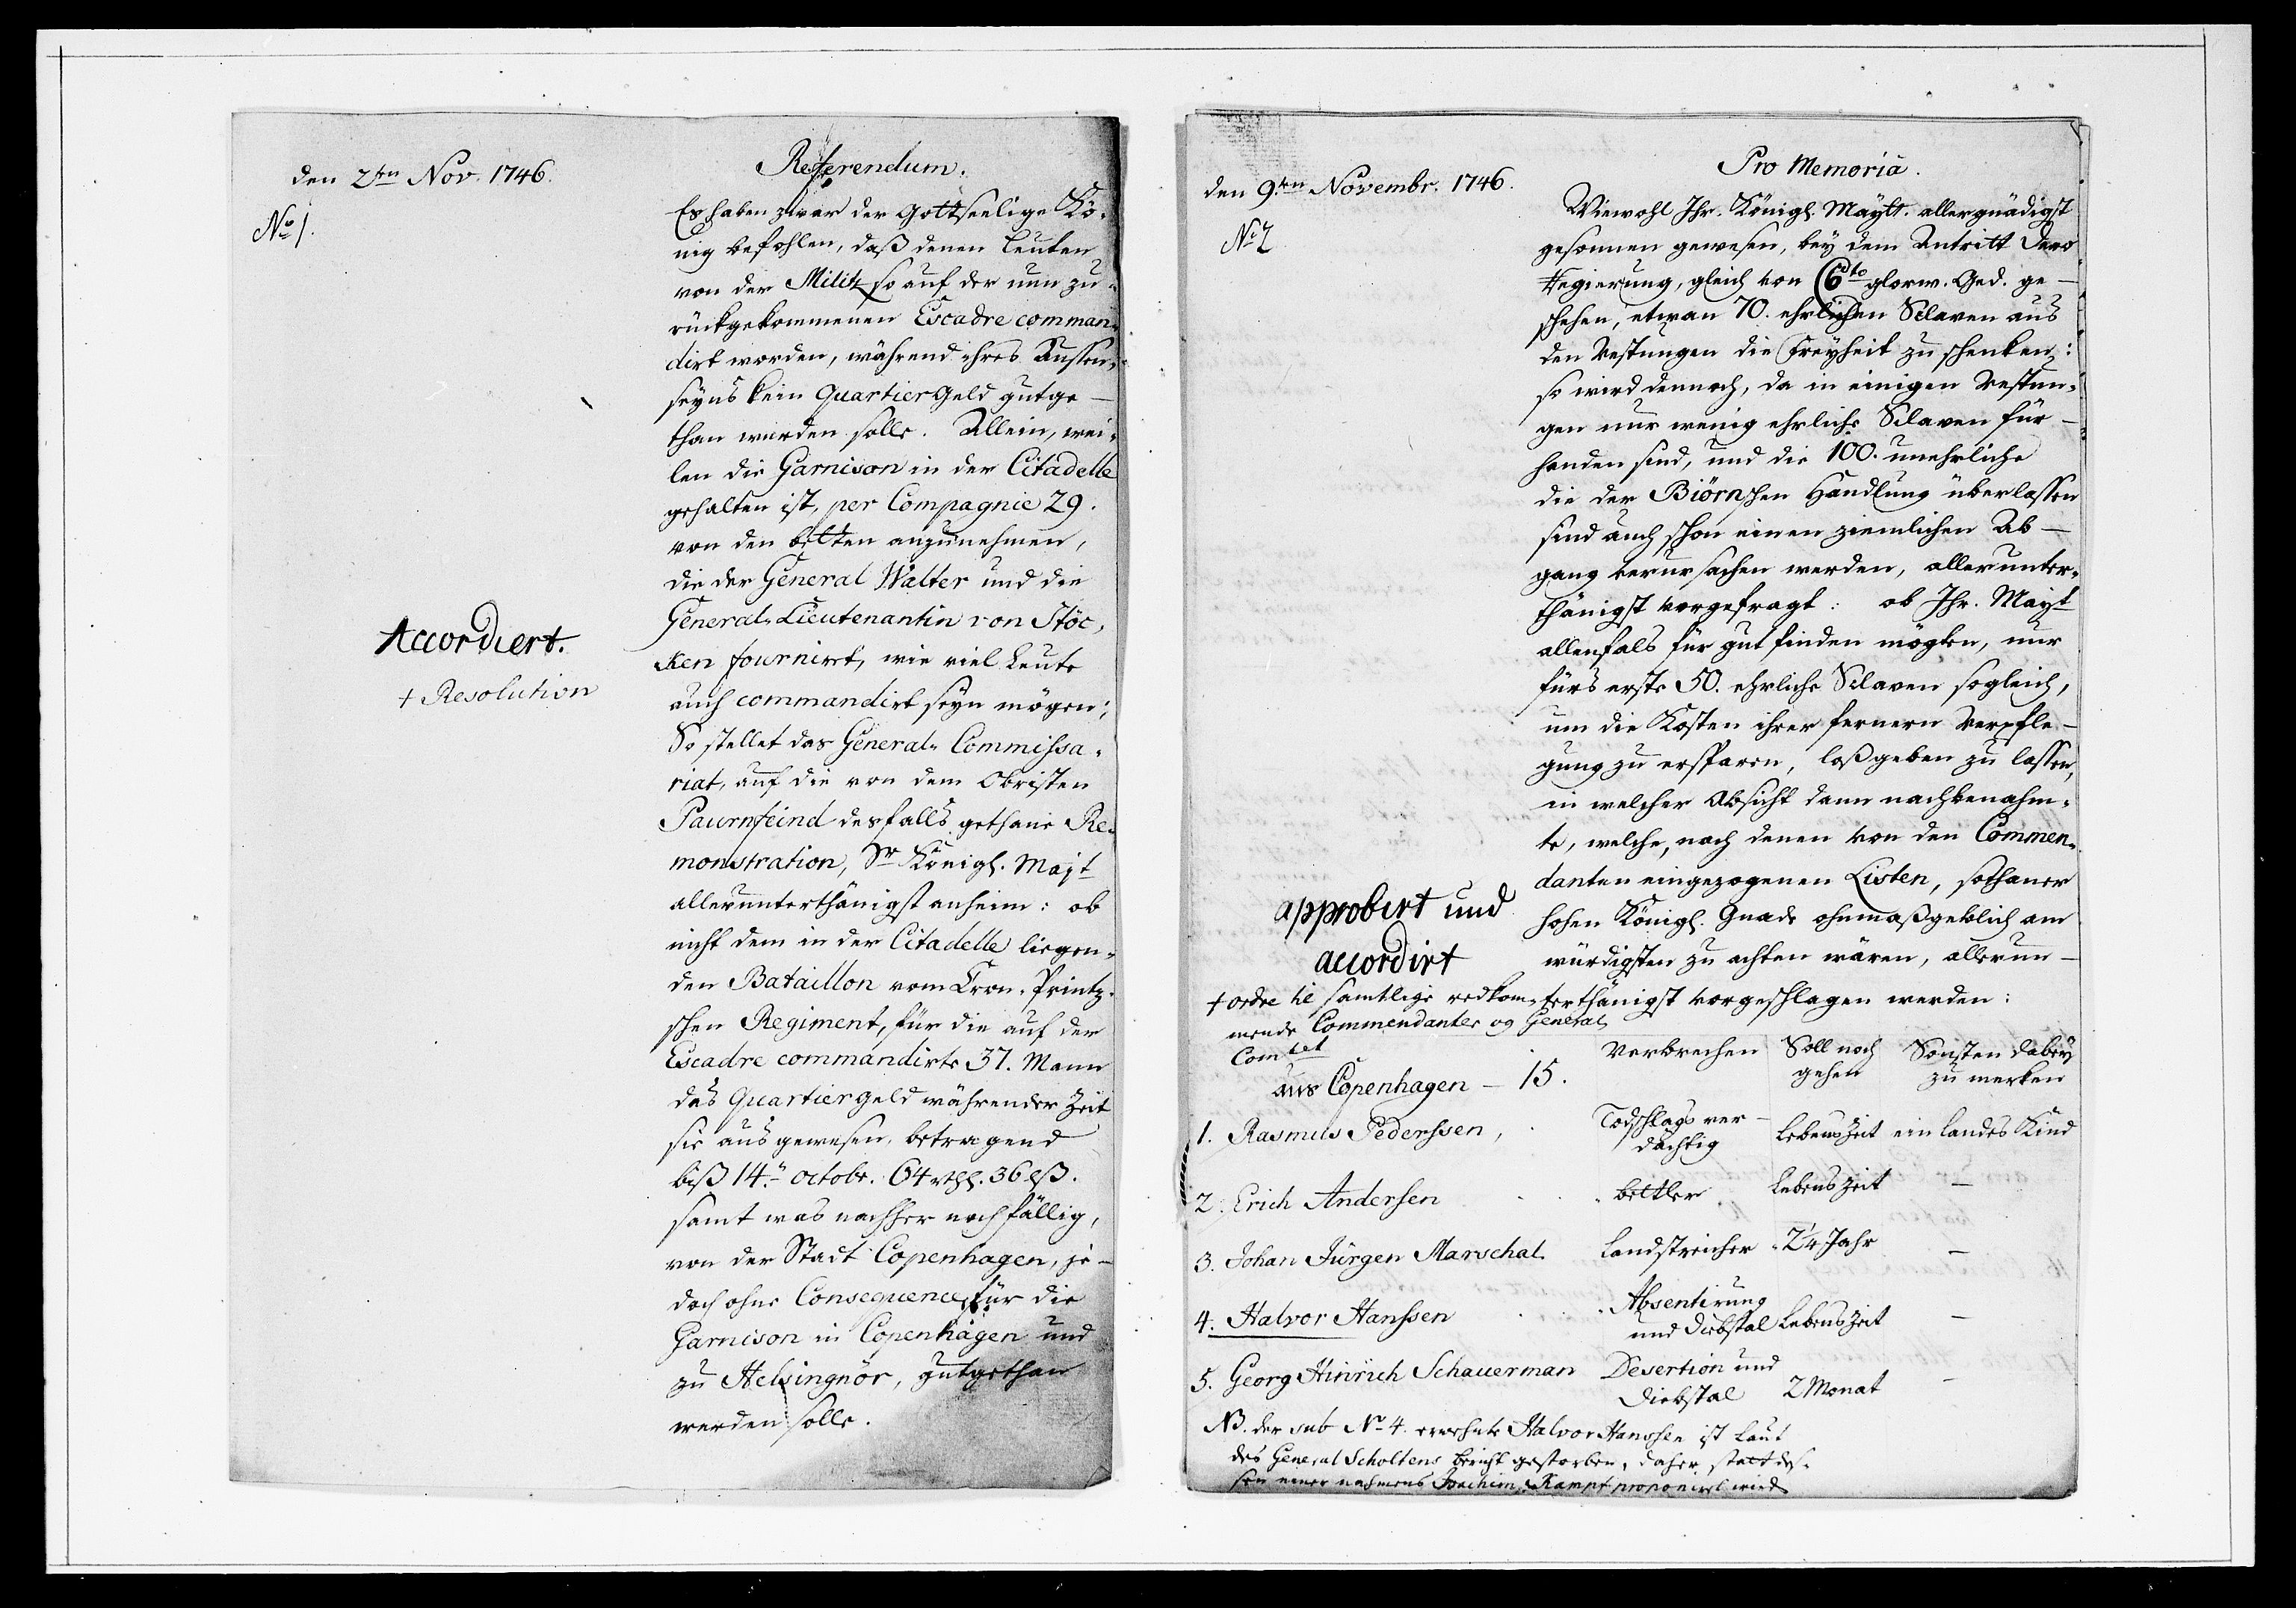 den 2ten Nov. 1746.
No 1.
Referendum.
Es haben zwar der Gottseelige Kö-
nig befohlen, daß denen Leuten
von der Militz so auf der nun zu-
rückgekommenen Escadre comman-
dirt worden, während ihres Aussen-
seyns kein Quartier Geld gutge-
than werden solle. Allein, wei-
len die Garnison in der Citadelle
gehalten ist, per Compagnie 29.
von den betten anzunehmen,
die der General Walter und die
General-Lieutenantin von Stöc-
ken fournirt, wie viel Leute
auch commandirt seyn mögen;
So stellet das General-Commissa-
riat, auf die von dem Obristen
Paurnfeind desfalls gethane Re-
monstration, Sr Königl. Majt
allerunterthänigst anheim: ob
nicht dem in der Citadelle liegen-
den Bataillon vom Cron-Printz-
schen Regiment, für die auf der
Escadre commandirte 37. Mann
das Quartiergeld währender Zeit
sie aus gewesen, betragend
biß 14. octobr. 64 rthl. 36  lß.
samt was nachher noch fällig,
von der Stadt Copenhagen, je-
doch ohne Consequence, für die
Garnison in Copenhagen und
zu Helsingnör, gutgethan
werden solle.
Accordiert.
+ Resolution
den 9.ten Novembr. 1746.
No 2
Pro Memoria.
Wiewohl Ihr. Königl. Maytt. allergnädigst
gesonnen gewesen, bey dem Antritt Dero
Regierung, gleich von 6to glorw. Ged. ge-
schehen, etwan 70. ehrlichen Sclaven aus
den Vestungen die Freyheit zu schenken:
so wird dennoch, da in einigen Vestun-
gen nur wenig ehrliche Sclaven für-
handen sind, und die 100. unehrliche
die der Biörnschen Handlung überlassen
sind auch schon einen ziemlichen Ab-
gang verursachen werden, allerunter-
thänigst vorgefragt: ob Ihr. Mayt
allenfals für gut finden mögten, nur
fürs erste 50. ehrliche Sclaven sogleich,
um die Kosten ihrer fernern Verpfle-
gung zu ersparen, loßgeben zu lassen,
in welcher Absicht dann nachbenahm-
te, welche, nach denen von den Commen-
danten eingezogenen Listen, sothaner
hohen Königl. Gnade ohnmaßgeblich am
würdigsten zu achten wären, allerun-
terthänigst vorgeschlagen werden:
approbirt und
accordirt
+ ordre til samtlige vedkom-
mende Commendanter og General
Comtet
aus Copenhagen – 15.
Verbrechen Soll noch gehen Sonsten dabey zu merken
1. Rasmus Pederssen, Todschlags verdächtig Lebens Zeit ein Landes Kind
2. Erich Andersen bettler Lebens Zeit –
3. Johan Jürgen Marschal Landstreicher 2¼ Jahr –
4. Halvor Hanssen Absentirung und Diebstal Lebens Zeit –
5. Georg Hinrich Schauerman Desertion und Diebstal 2 Monat –
NB. der sub No 4. erwehnte Halvor Hanssen ist laut
des General Scholtens bericht gestorben, daher statt des-
sen einer nahmens Joachim Kampf proponirt wird